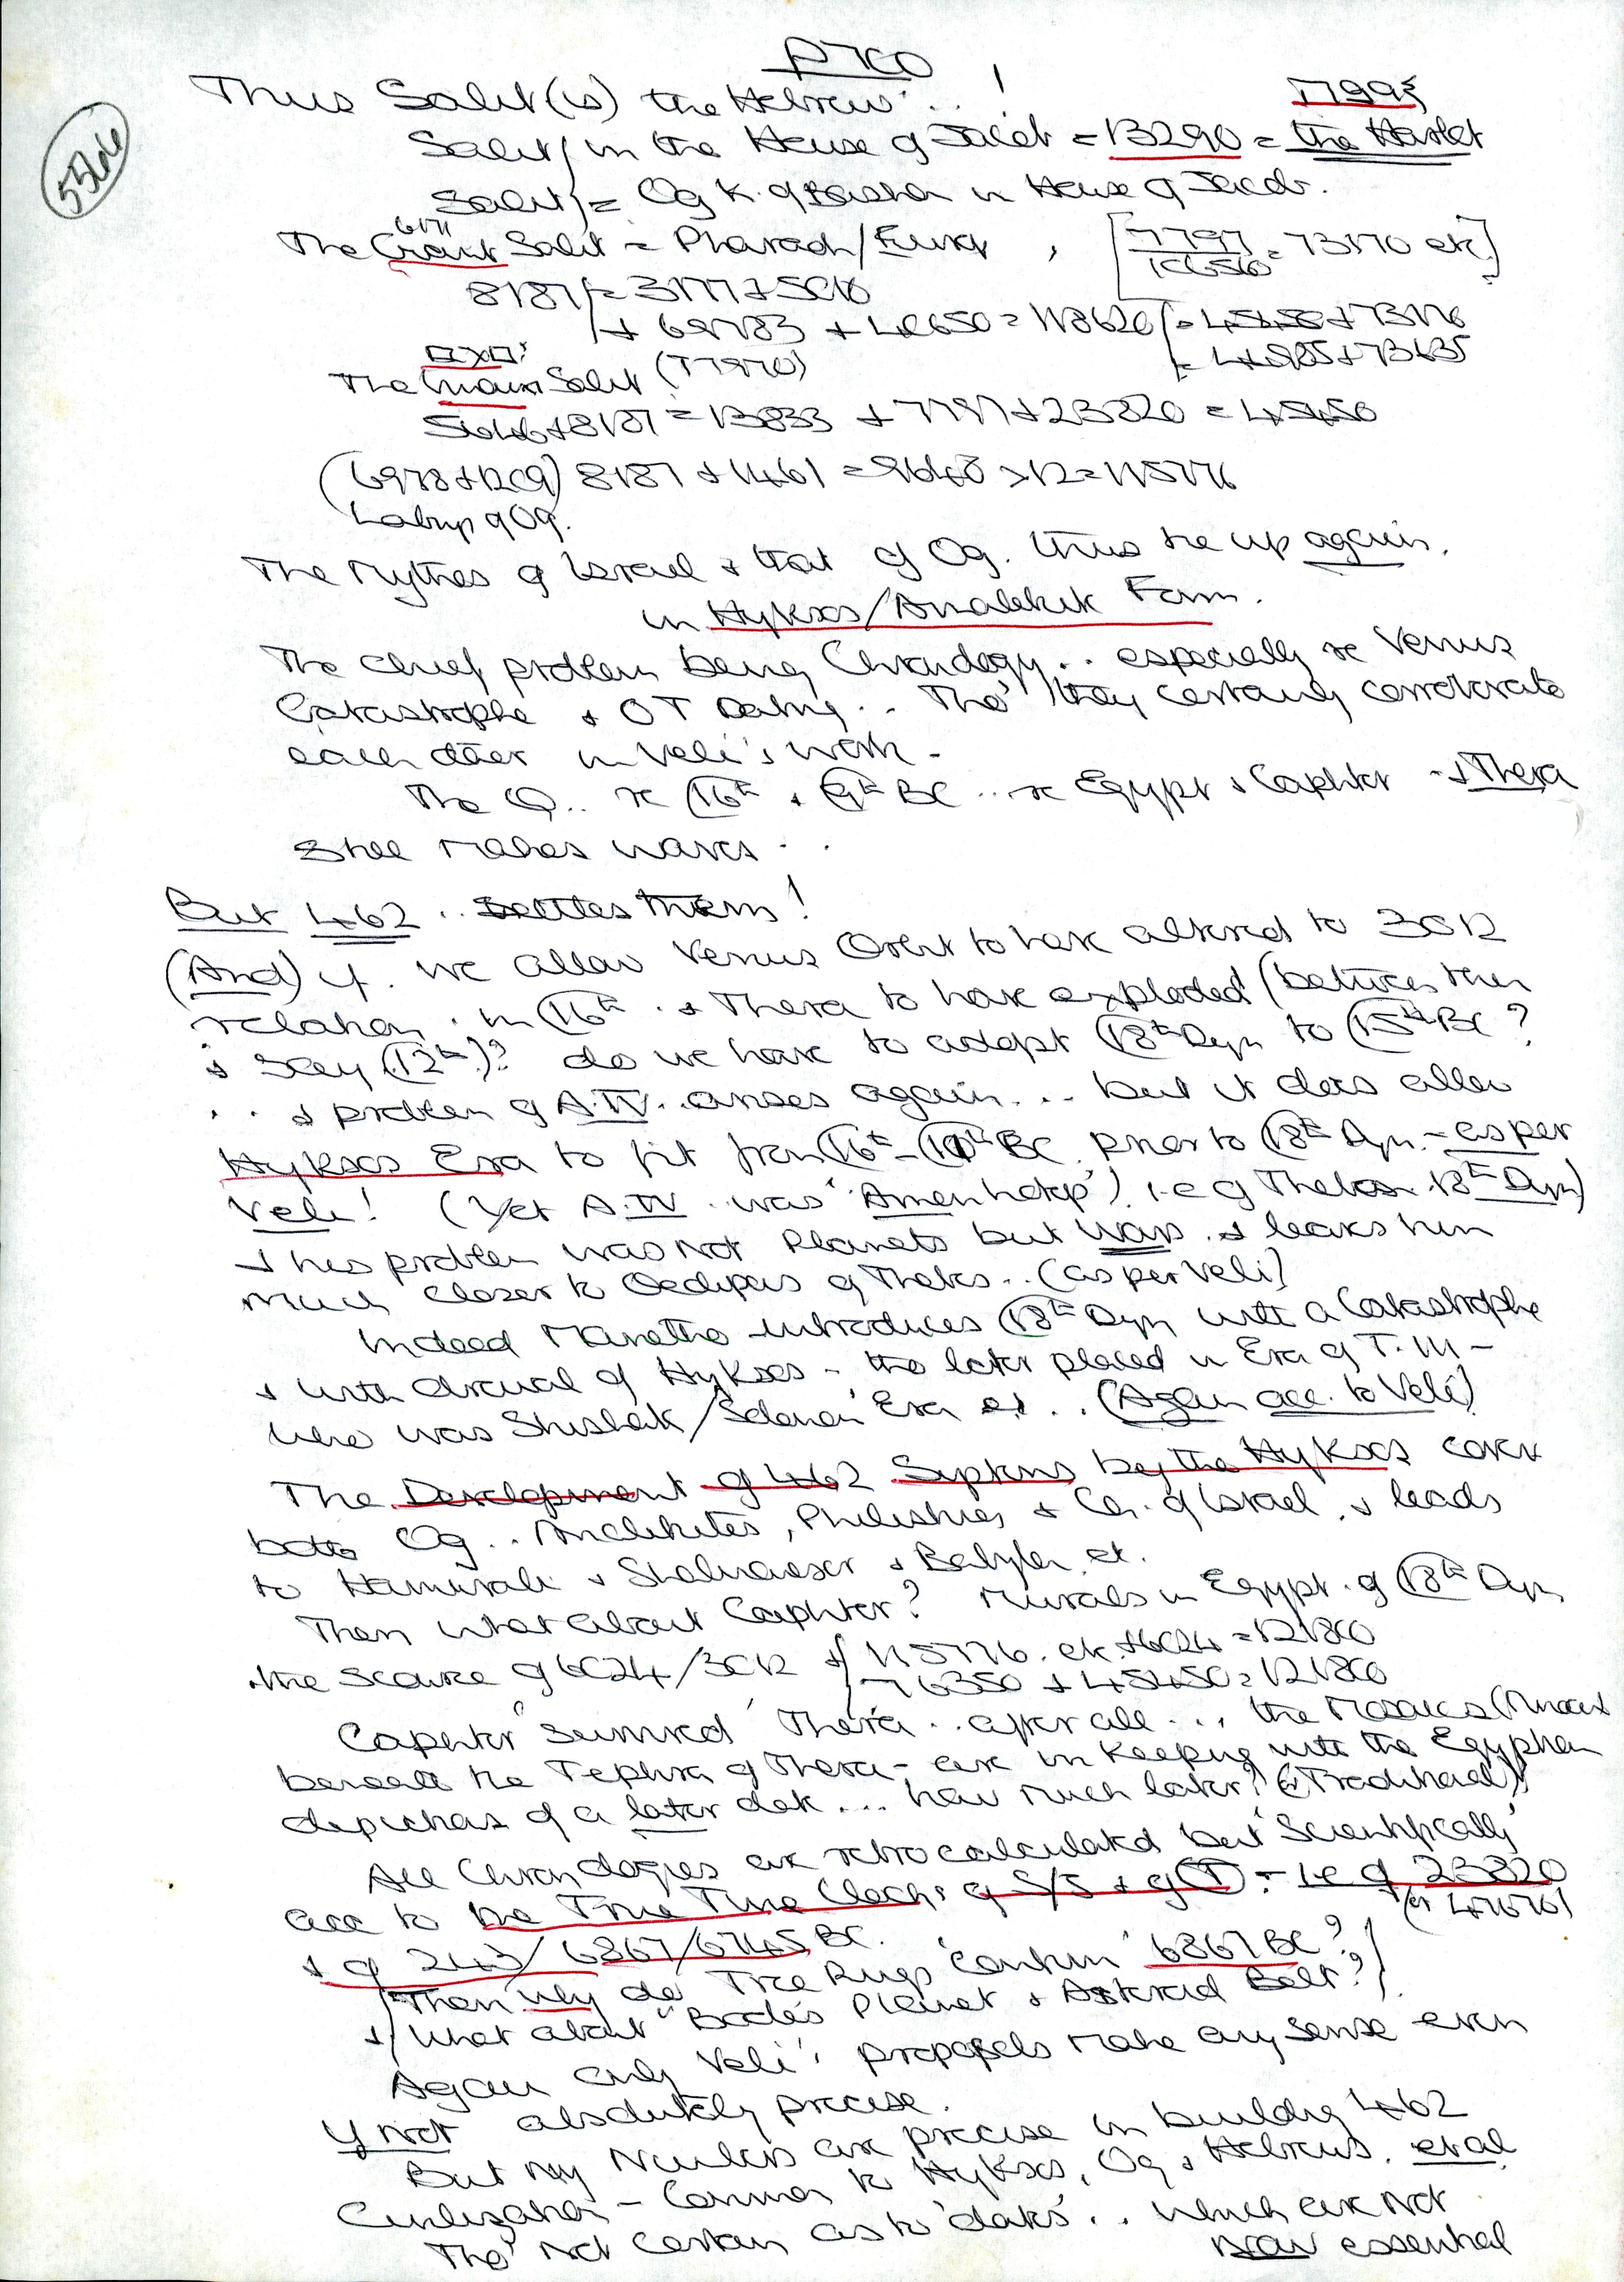 PTO
Thus Salit(is) the Hebrew . . . !
Salit/in the House of Jacob = 13290 = the Harlot
Salit/= Og K. of Bashan in House of Jacob.
The Giant Salit = Pharaoh/
6171
8187/= 3177 + 5010
+ 69783 + 40650 = 118620
The Salit (T7970)
+ 8187 = 13833 + 7797 + 23820 = 45450
(6978 + 1209) 8187 + 1461 = 9648 × 12 = 115776
Labyr 909.
The Mythes of Israel + that of Og. thus tie up again.
in Hyksos/Amalekite Form.
The chief problem being Chronology . . especially re Venus
Catastrophe + OT Dating . . Tho' they certainly corroborate
each other in Veli's work -
The Q . . re 16th + 9th BC . . re Egypt + Caphtor - + Thera
still makes waves . .
But 462 . . settles them!
(And) if . we allow Venus Orbit to have altered to 3012
relation . in 16th . + Thera to have exploded (between then
+ say 12th)? do we have to adopt 18th Dyn to 15th BC ?
. . + problem of A.IV. arises again . . . but it does allow
Hyksos Era to fit from 16th - BC prior to 18th Dyn - as per
Veli! (Yet A.IV . was 'Amenhotep') i.e of Theban 18th Dyn)
+ his problem was not Planets but Wars . + leaks him
much closer to Oedipus of Thebes . . (as per Veli)
Indeed Manetho introduces 18th Dyn with a Catastrophe
+ with arrival of Hyksos - the later placed in Era of T. III -
who was Shishak/Solomon Era et . . (Again acc. to Veli)
The Development of 462 Systems by the Hyksos cover
both Og . . Amalekites, Philistines + Ch. of Israel . + leads
to Hamurabi + Shalmaneser + Babylon et.
Then what about Caphtor? Murals in Egypt . of 18th Dyn
the source of 6024/3012 115776 . etc + 6024 = 121800
76350 + 45450 = 121800
Caphtor "survived" Thera . . after all . . , the Mosaics
beneath the Tephra of Thera - are in keeping with the Egyptian
depictions of a later date . . . how much later? (Traditional)
All Chronologies are retrocalculated but 'Scientifically'
acc to the True Time Clock: of S/J + of (T) - i.e of 23820
+ of 243/6867/6745 BC.
Then why do Tree Rings 'confirm' 6867 BC ?
+ What about "Bode's Planet + Asteroid Belt?
Again only Veli's proposals make any sense even
if not absolutely precise.
But my Numbers are precise in building 462
Civilisation - Common to Hyksos, Og + Hebrews. et al
Tho' not certain as to 'dates' . . which are not
now essential